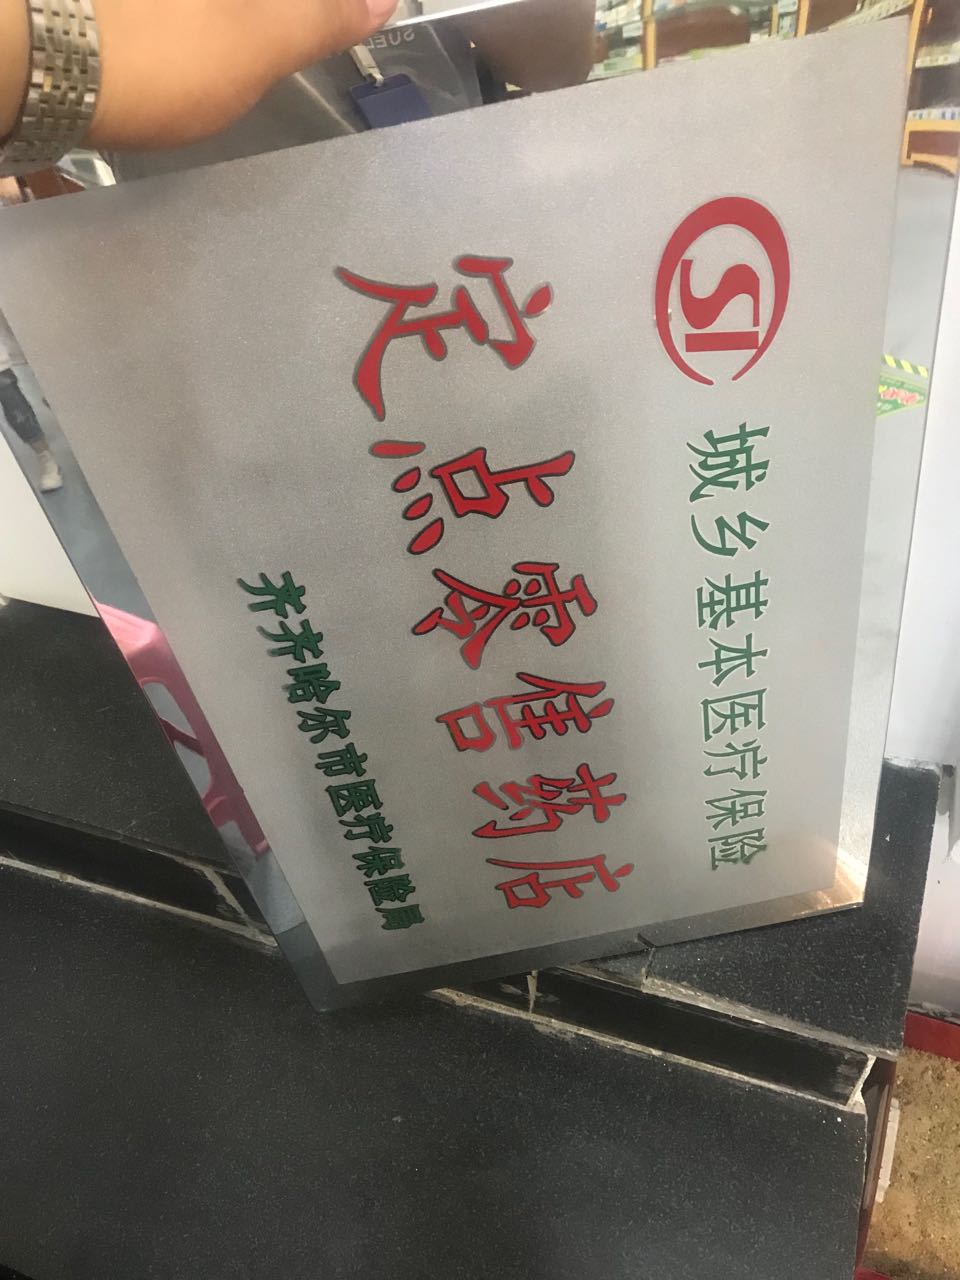 SI 城乡基本医疗保险
定点零售药店
齐齐哈尔市医疗保险局